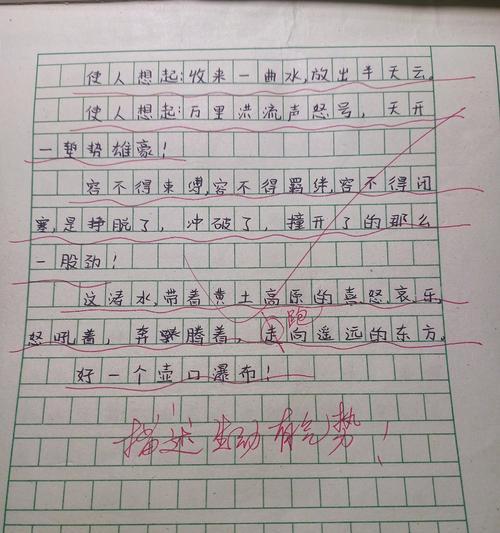 使人想起:收来一曲水,放出半天云。
使人想起:万里洪流声怒号,天开
一堑势雄豪!
容不得束缚,容不得羁绊,容不得闭
塞,是挣脱了,冲破了,撞开了的那么
一股劲!
这涛水,带着黄土高原的喜怒哀乐,
跑
怒吼着,奔腾着,走向遥远的东方。
好一个壶口瀑布!
描述生动有气势!